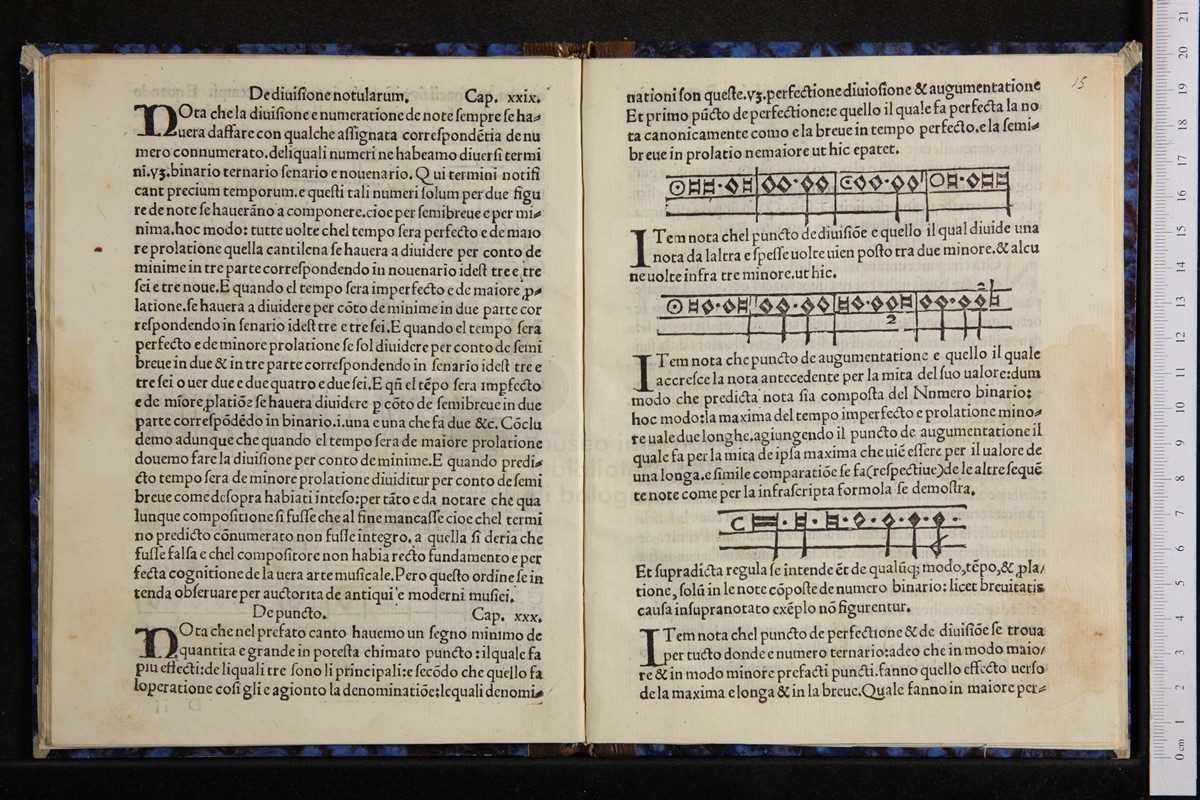 De diuisione notularum. Cap. xxix.
NOta che la diuisione e numeratione de note sempre se ha⸗
uera daffare con qualche assignata correspondētia de nu
mero connumerato. deli quali numeri ne habeamo diuersi termi
ni. vꝫ. binario ternario senario e nouenario. Qui termini notifi
cant precium temporum. e questi tali numeri solum per due figu
re de note se hauerãno a componere. cioe per semibreue e per mi⸗
nima. hoc modo: tutte uolte chel tempo sera perfecto e de maio
re prolatione quella cantilena se hauera a diuidere per conto de
minime in tre parte correspondendo in nouenario idest tre e tre
sei e tre noue. E quando el tempo sera imperfecto e de maiore ꝓ⸗
latione. se hauera a diuidere per cōto de minime in due parte cor
respondendo in senario idest tre e tre sei. E quando el tempo sera
perfecto e de minore prolatione se sol diuidere per conto de semi
breue in due & in tre parte correspondendo in senario idest tre e
tre sei o uer due e due quatro e due sei. E qñ el tēpo sera impfecto
e de mīore ꝓlatiōe se hauera diuidere p cōto de semibreue in due
parte correspōdēdo in binario. i. una e una che fa due &c. Cōclu
demo adunque che quando el tempo sera de maiore prolatione
douemo fare la diuisione per conto de minime. E quando predi⸗
cto tempo sera de minore prolatione diuiditur per conto de semi
breue come desopra habiati inteso: per tãto e da notare che qua
lunque compositione si fusse che al fine mancasse cioe chel termi
no predicto cōnumerato non fusse integro, a quella si deria che
fusse falsa e chel compositore non habia recto fundamento e per
fecta cognitione de la uera arte musicale. Pero questo ordine se in
tenda obseruare per auctorita de antiqui e moderni musici.
De puncto. Cap. xxx.
NOta che nel prefato canto hauemo un segno minimo de
quantita e grande in potesta chimato puncto: il quale fa
piu effecti: de li quali tre sono li principali: e secōdo che quello fa
loperatione cosi gli e agionto la denominatiōe: le quali denomi⸗
15
nationi son queste. vꝫ. perfectione diuiosione & augumentatione
Et primo pūcto de perfectione: e quello il quale fa perfecta la no
ta canonicamente como e la breue in tempo perfecto. e la semi⸗
breue in prolatio ne maiore ut hic epatet.
ITem nota chel puncto de diuisiōe e quello il qual diuide una
nota da laltra e spesse uolte uien posto tra due minore. & alcu
ne uolte infra tre minore. ut hic.
2
2
ITem nota che puncto de augumentatione e quello il quale
accresce la nota antecedente per la mita del suo ualore: dum
modo che predicta nota sia composta del Nnmero binario:
hoc modo: la maxima del tempo imperfecto e prolatione mino⸗
re uale due longhe. agiungendo il puncto de augumentatione il
quale fa per la mita de ipsa maxima che uiē essere per il ualore de
una longa. e simile comparatiōe se fa (respectiue) de le altre sequē
te note come per la infrascripta formola se demostra.
Et supradicta regula se intende ēt de qualūqꝫ modo, tēpo, & ꝓla/
tione, solū in le note cōposte de numero binario: licet breuitatis
causa insupranotato exēplo nō figurentur.
ITem nota chel puncto de perfectione & de diuisiōe se troua
per tucto donde e numero ternario: adeo che in modo maio/
re & in modo minore prefacti puncti. fanno quello effecto uerso
de la maxima e longa & in la breue. Quale fanno in maiore per⸗